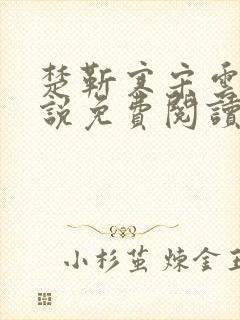 楚靳寒宋雲
說免費閱讀
小杉茧 煉金王